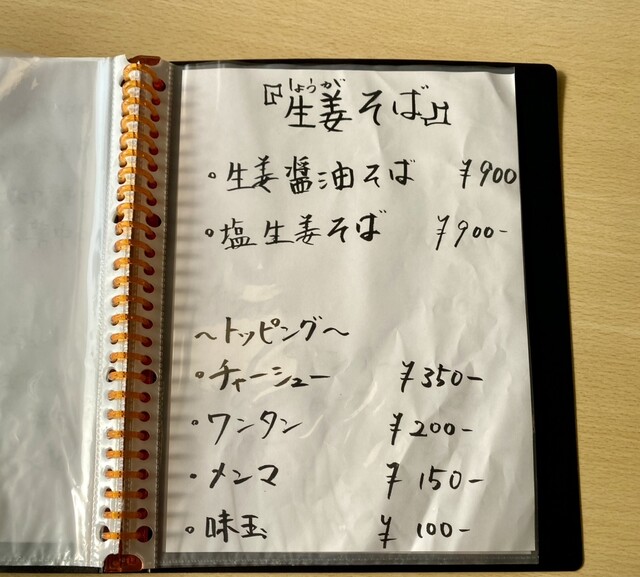 しょうが
『生姜そば』
・生姜醤油そば ¥900
・塩生姜そば ¥900-
～トッピング～
・チャーシュー ¥350-
・ワンタン ¥200-
・メンマ ¥150-
・味玉 ¥100-